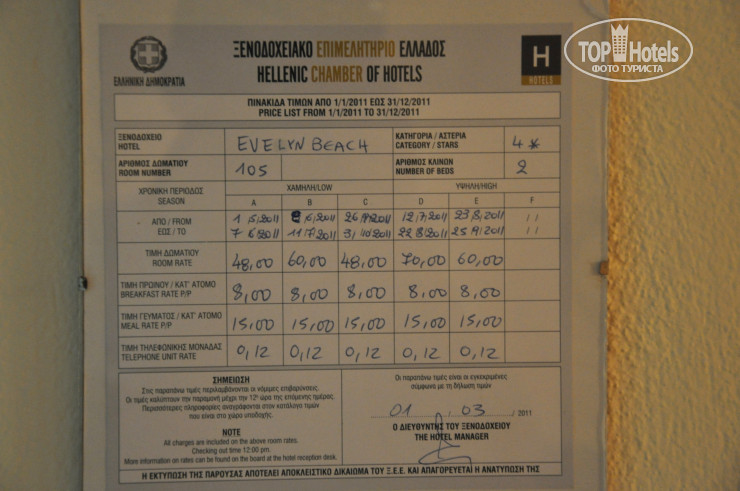 ΞΕΝΟΔΟΧΕΙΑΚΟ ΕΠΙΜΕΛΗΤΗΡΙΟ ΕΛΛΑΔΟΣ
HELLENIC CHAMBER OF HOTELS
ΕΛΛΗΝΙΚΗ ΔΗΜΟΚΡΑΤΙΑ
H
HOTELS
TOP Hotels
ФОТО ТУРИСТА
ΠΙΝΑΚΙΔΑ ΤΙΜΩΝ ΑΠΟ 1/1/2011 ΕΩΣ 31/12/2011
PRICE LIST FROM 1/1/2011 TO 31/12/2011
ΞΕΝΟΔΟΧΕΙΟ
HOTEL
EVELYN BEACH
ΚΑΤΗΓΟΡΙΑ / ΑΣΤΕΡΙΑ
CATEGORY / STARS
4 *
ΑΡΙΘΜΟΣ ΔΩΜΑΤΙΟΥ
ROOM NUMBER
105
ΑΡΙΘΜΟΣ ΚΛΙΝΩΝ
NUMBER OF BEDS
2
ΧΡΟΝΙΚΗ ΠΕΡΙΟΔΟΣ
SEASON
ΧΑΜΗΛΗ/LOW ΥΨΗΛΗ/HIGH
A B C D E F
- ΑΠΟ / FROM 1 /5/2011 /6/2011 12/7/2011 23/8/2011 / /
ΕΩΣ / TO 7/6/2011 11/7/2011 3/10/2011 22/8/2011 25/9/2011 / /
ΤΙΜΗ ΔΩΜΑΤΙΟΥ
ROOM RATE
48,00 60,00 48,00 70,00 60,00
ΤΙΜΗ ΠΡΩΙΝΟΥ / ΚΑΤ' ΑΤΟΜΟ
BREAKFAST RATE P/P
8,00 8,00 8,00 8,00 8,00
ΤΙΜΗ ΓΕΥΜΑΤΟΣ / ΚΑΤ' ΑΤΟΜΟ
MEAL RATE P/P
15,00 15,00 15,00 15,00 15,00
ΤΙΜΗ ΤΗΛΕΦΩΝΙΚΗΣ ΜΟΝΑΔΑΣ
TELEPHONE UNIT RATE
0,12 0,12 0,12 0,12 0,12
ΣΗΜΕΙΩΣΗ
Στις παραπάνω τιμές περιλαμβάνονται οι νόμιμες επιβαρύνσεις.
Οι τιμές καλύπτουν την παραμονή μέχρι την 12η ώρα της επόμενης ημέρας.
Περισσότερες πληροφορίες αναγράφονται στον κατάλογο τιμών
που είναι στο χώρο υποδοχής.
NOTE
All charges are included on the above room rates.
Checking out time 12:00 pm.
More information on rates can be found on the board at the hotel reception desk.
Οι παραπάνω τιμές είναι οι εγκεκριμένες
σύμφωνα με τη δήλωση τιμών
01 03 2011
Ο ΔΙΕΥΘΥΝΤΗΣ ΤΟΥ ΞΕΝΟΔΟΧΕΙΟΥ
THE HOTEL MANAGER
Η ΕΚΤΥΠΩΣΗ ΤΗΣ ΠΑΡΟΥΣΑΣ ΑΠΟΤΕΛΕΙ ΑΠΟΚΛΕΙΣΤΙΚΟ ΔΙΚΑΙΩΜΑ ΤΟΥ Ξ.Ε.Ε. ΚΑΙ ΑΠΑΓΟΡΕΥΕΤΑΙ Η ΑΝΑΤΥΠΩΣΗ ΤΗΣ